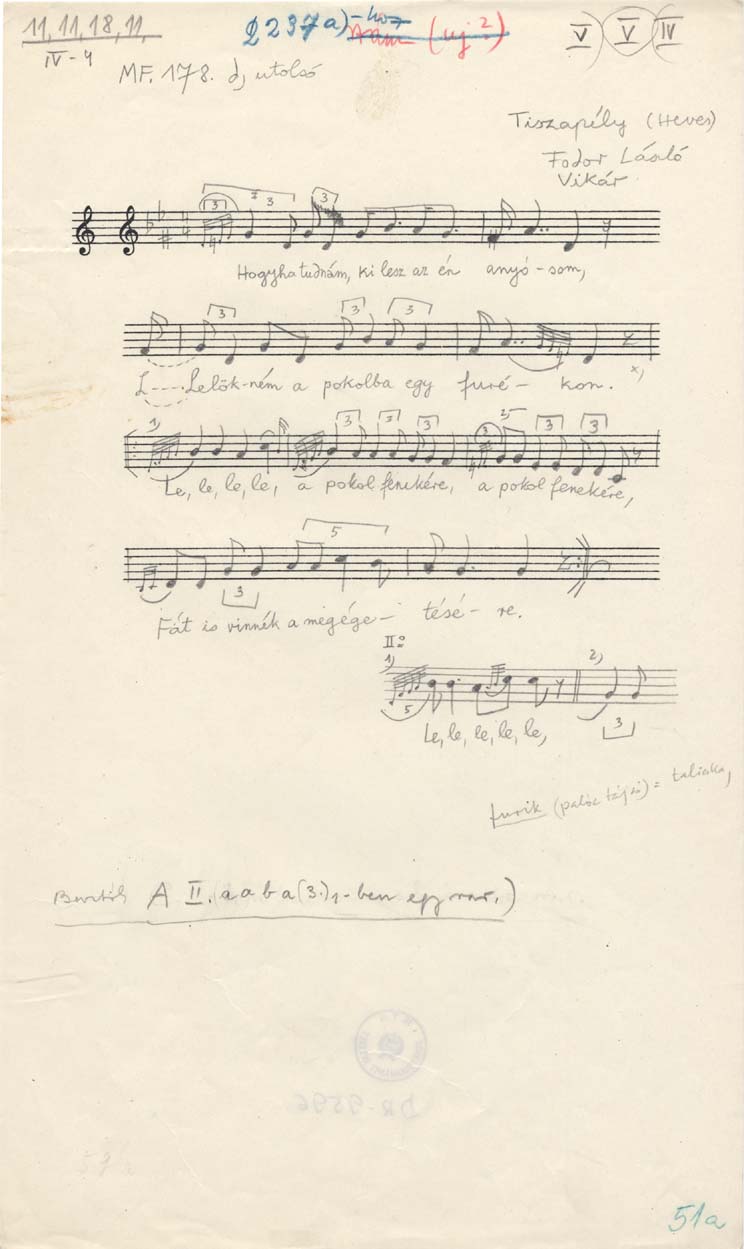 11, 11, 18, 11,
IV - 4
2237a)-hoz (uj 2)
V) V) IV
MF. 178. d, utolsó
Tiszapély (Heves)
Fodor László
Vikár
3 3 3
Hogyha tudnám, ki lesz az én anyó-som,
3 3 3
L----Lelök-ném a pokolba egy furé- kon. x)
1) 3 3 3 3 2) 3 3
Le, le, le, le, a pokol fenekére, a pokol fenekére,
5
3
Fát is vinnék a megége- tésé- re.
II:
1) 2)
5 3
Le, le, le, le, le,
furik (palóc tájszó) = talicska,
Bartók A II. a a b a (3.)1-ben egy var.)
DR-9596
51a